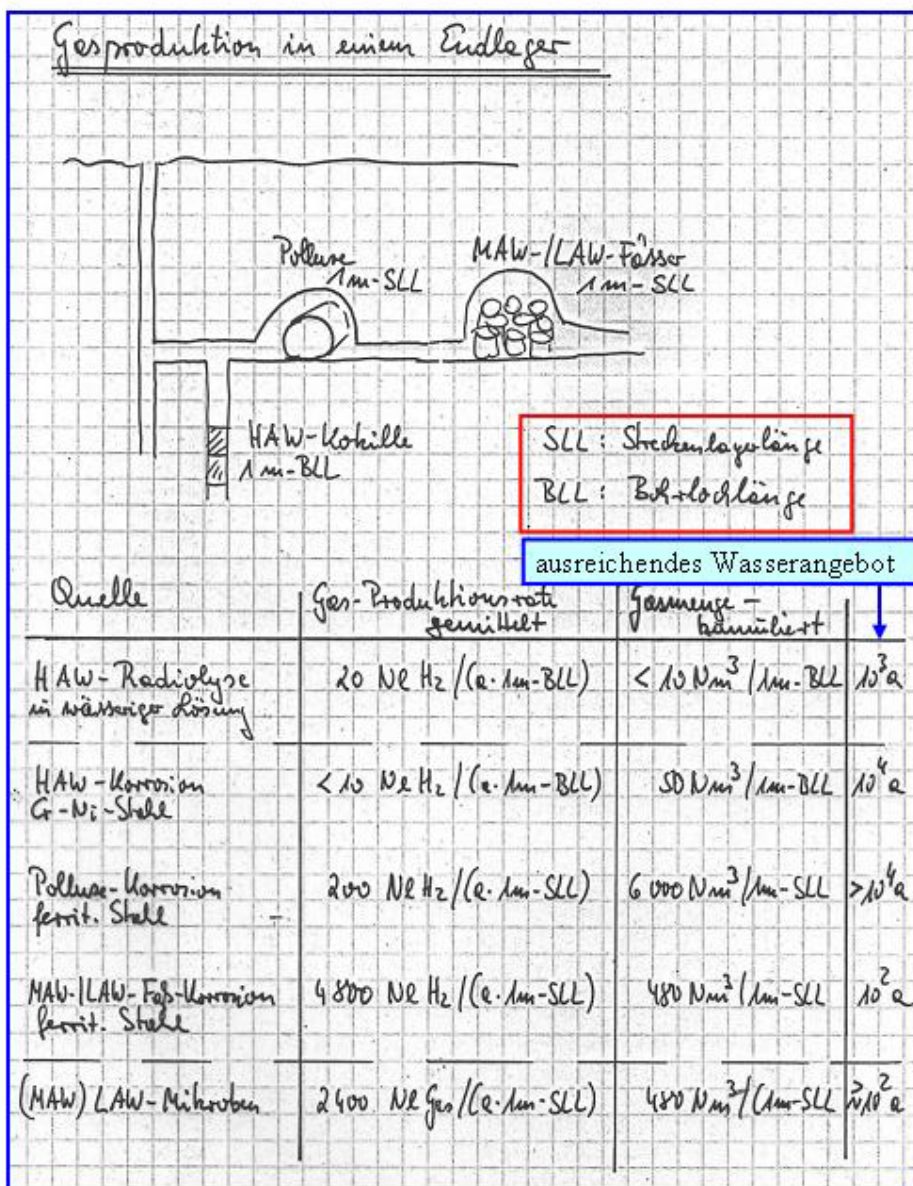 Gasproduktion in einem Endlager
Polluxe
1m-SLL
MAW-/LAW-Fässer
1m-SLL
HAW-Kokille
1m-BLL
SLL: Streckenlagerlänge
BLL: Bohrlochlänge
ausreichendes Wasserangebot
Quelle
Gas-Produktionsrate
gemittelt
Gasmenge-
kumuliert
HAW-Radiolyse
in wässeriger Lösung
20 Nl H₂/(a·1m-BLL)
< 10 Nm³/1m-BLL
10³a
HAW-Korrosion
Cr-Ni-Stahl
<10 Nl H₂/(a·1m-BLL)
50 Nm³/1m-BLL
10⁴a
Polluxe-Korrosion
ferrit. Stahl
200 Nl H₂/(a·1m-SLL)
6 000 Nm³/1m-SLL
>10⁴a
MAW-/LAW-Faß-Korrosion
ferrit. Stahl
4 800 Nl H₂/(a·1m-SLL)
480 Nm³/1m-SLL
10² a
(MAW) LAW-Mikroben
2400 Nl Gas/(a·1m-SLL)
480 Nm³/(1m-SLL
≥10² a